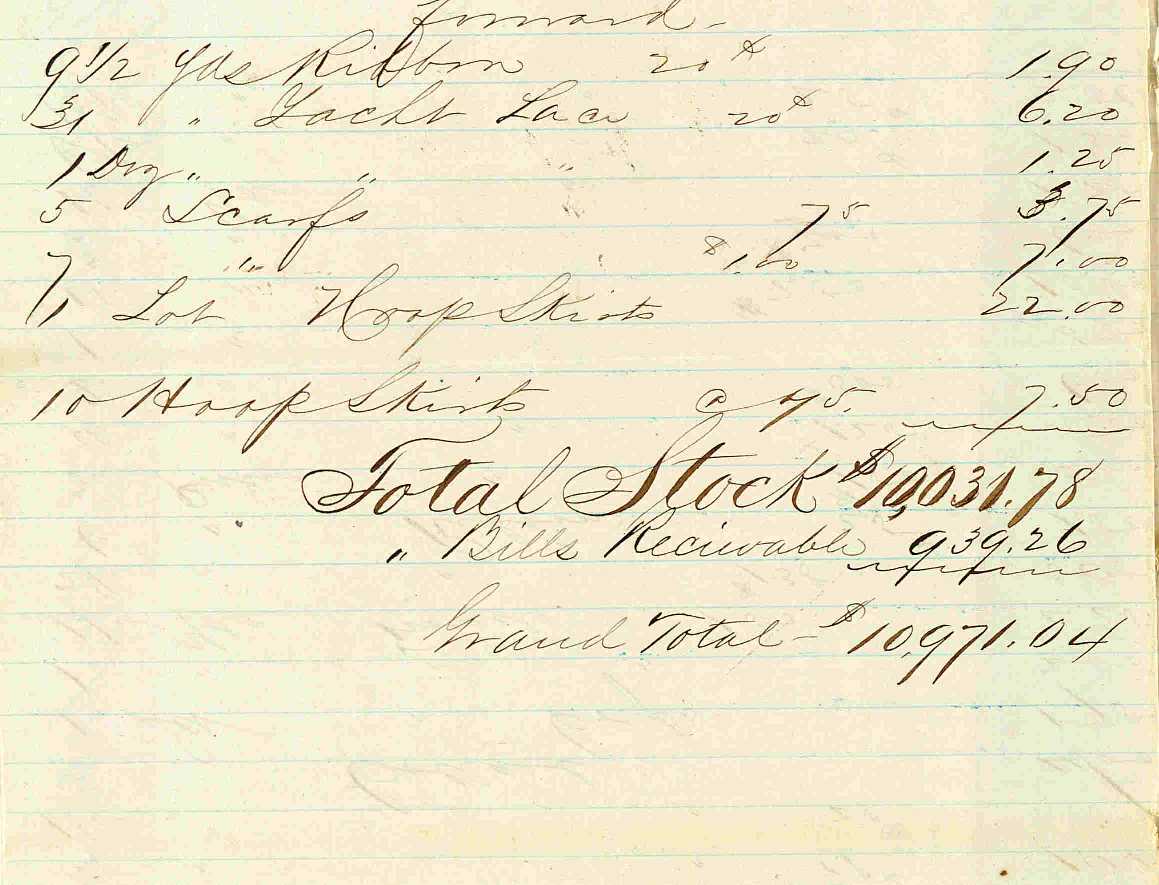 forward -
9 1/2 Yds Ribbon 20 ¢ 1.90
31 " Yacht Lace 20 ¢ 6.20
1 Doz " " " 1.25
5 Scarfs 75 3.75
7 " $1.00 7.00
1 Lot Hoop Skirts 22.00
10 Hoop Skirts @ 75. 7.50
Total Stock $10,031.78
" Bills Recievable 939.26
Grand Total - $10,971.04